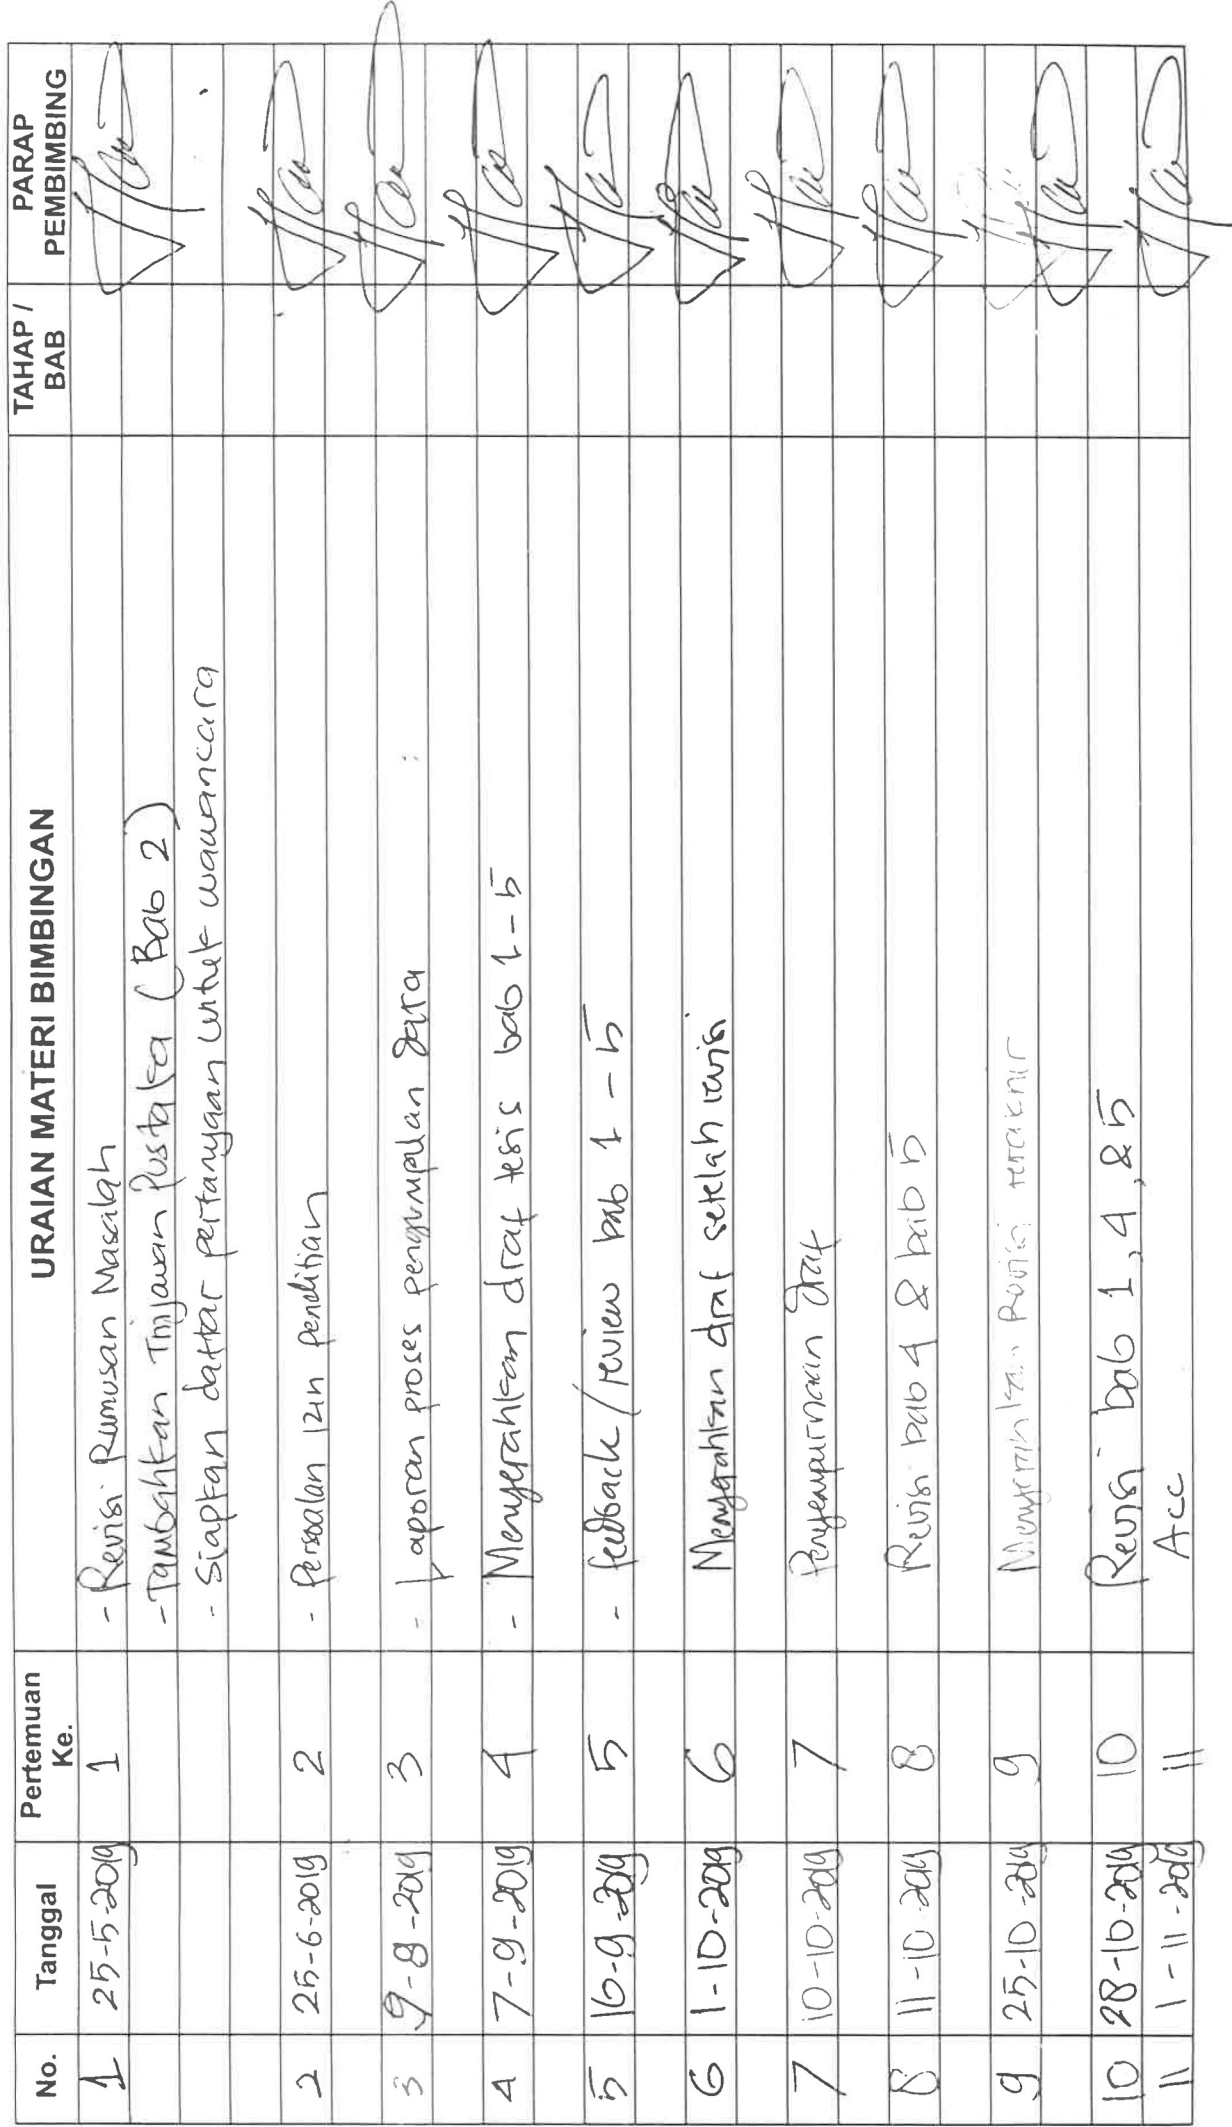 No. Tanggal Pertemuan Ke. URAIAN MATERI BIMBINGAN TAHAP / BAB PARAP PEMBIMBING
1 25-5-2019 1 - Revisi Rumusan Masalah
- Tambahkan Tinjauan Pustaka (Bab 2)
- Siapkan daftar pertanyaan untuk wawancara
2 25-6-2019 2 - Persoalan izin penelitian
3 9-8-2019 3 - Laporan proses pengumpulan data
4 7-9-2019 4 - Menyerahkan draf tesis bab 1-5
5 16-9-2019 5 - feedback/review bab 1-5
6 1-10-2019 6 Menyerahkan draf setelah revisi
7 10-10-2019 7 Penyempurnaan draf
8 11-10-2019 8 Revisi bab 4 & bab 5
9 25-10-2019 9 Menyerahkan Revisi terakhir
10 28-10-2019 10 Revisi bab 1, 4, & 5
11 1-11-2019 11 Acc